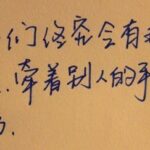 们终究会有
..牵着别人的手